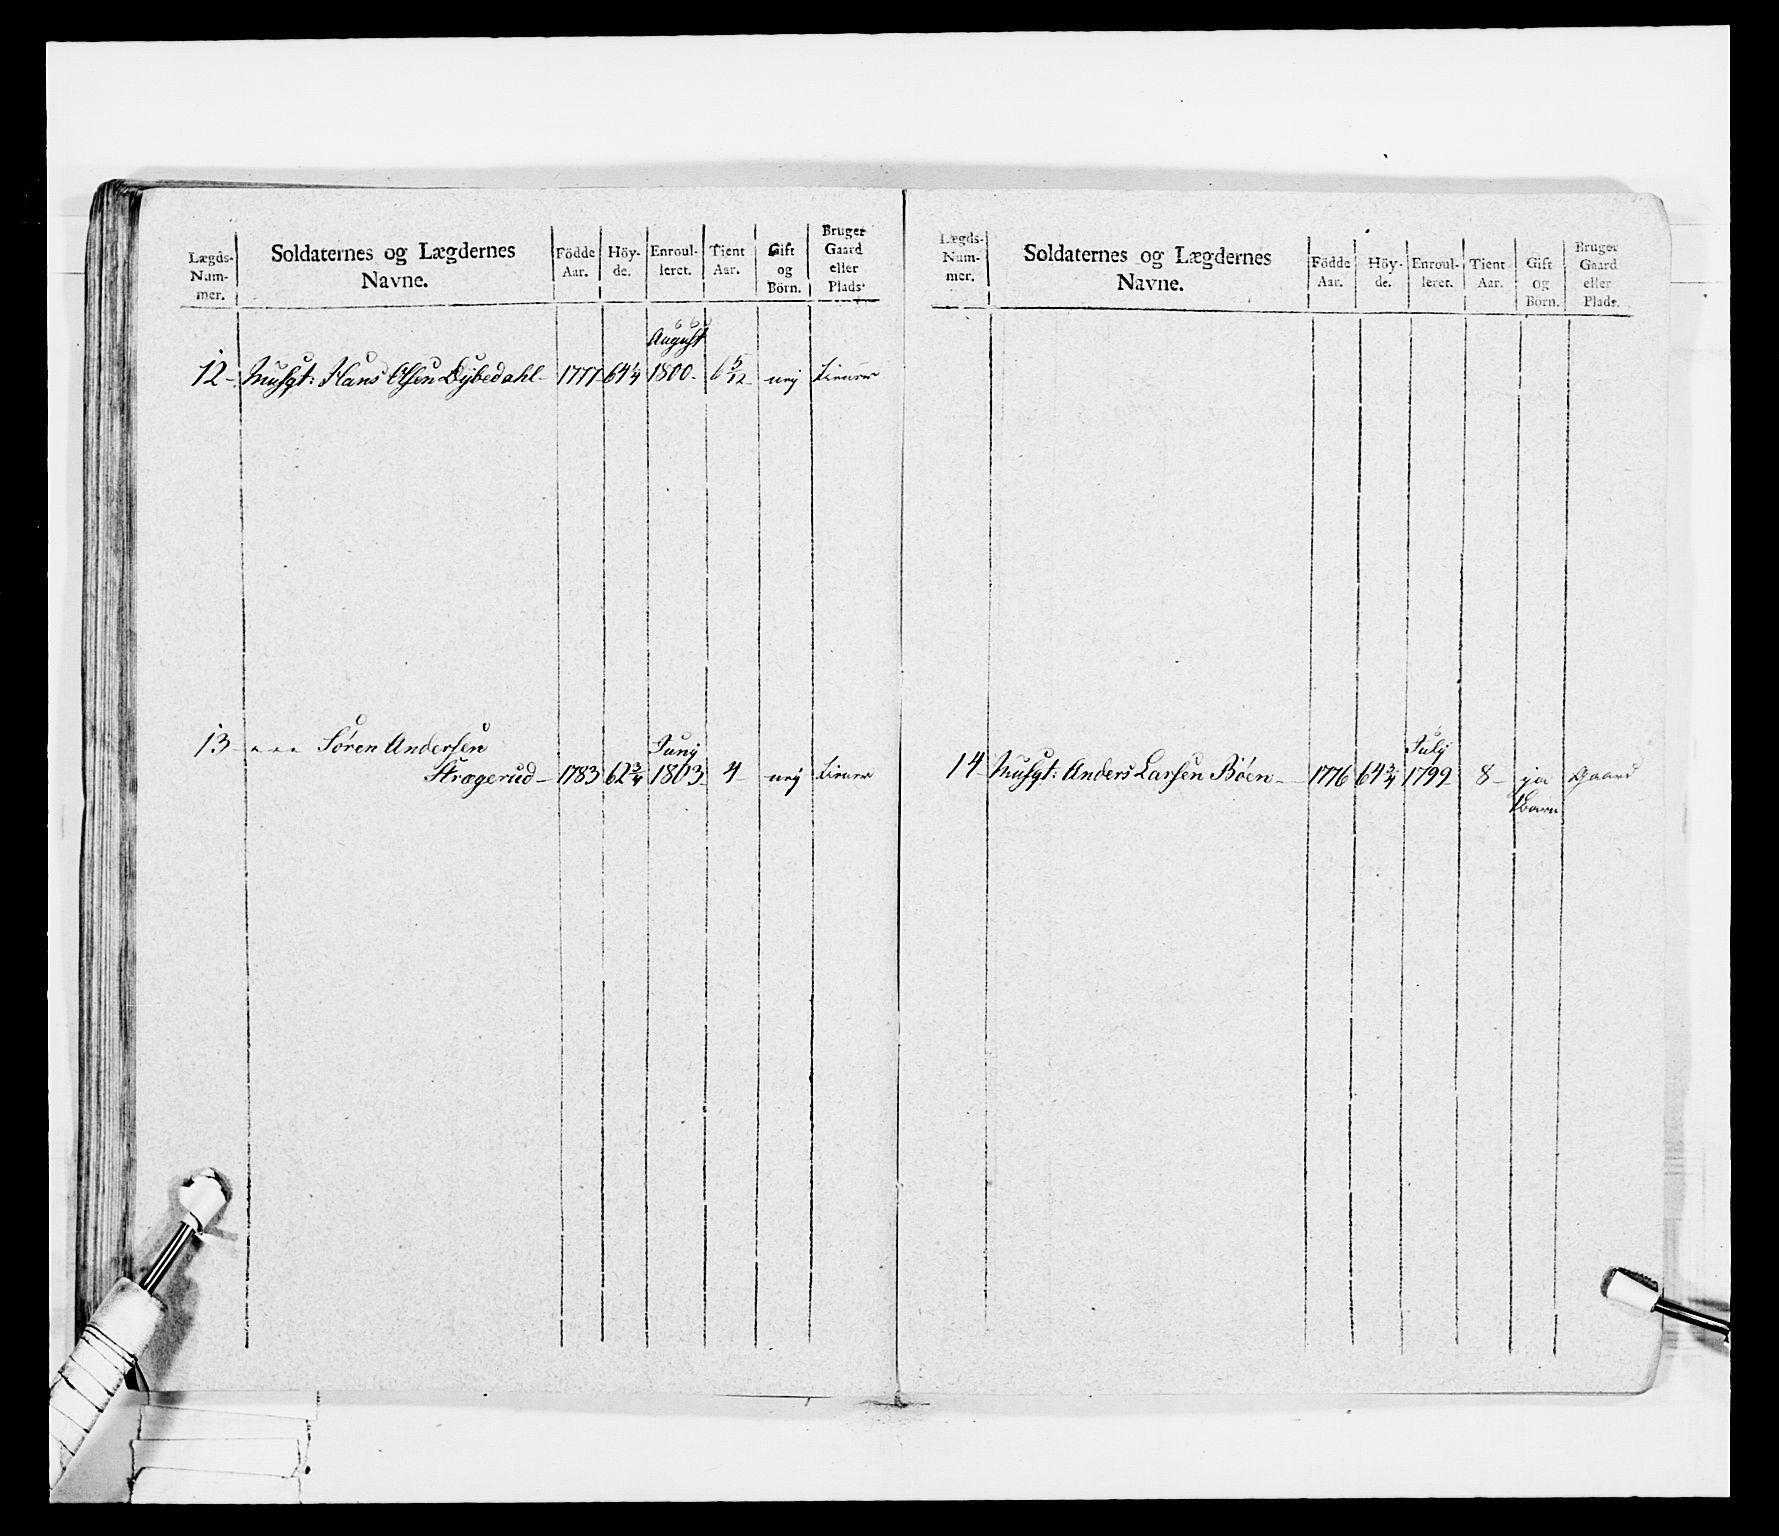 Lægds-
Num-
mer.
Soldaternes og Lægdernes
Navne.
Födde
Aar.
Höy-
de.
Enroul-
leret.
Tient
Aar.
Gift
og
Börn.
Bruger
Gaard
eller
Plads.
August
12 - Musqt: Hans Olsen Dybedahl - 1777 64 1/4 1800 - 6 5/12 - nej tiener
13 " " " Sören Andersen
Junij
Stragerud - 1783 62 3/4 1803 - 4 - nej tiener
Lægds-
Num-
mer.
Soldaternes og Lægdernes
Navne.
Födde
Aar.
Höy-
de.
Enroul-
leret.
Tient
Aar.
Gift
og
Börn.
Bruger
Gaard
eller
Plads.
July
14 - Musqt: Anders Larsen Böen - 1776 64 3/4 1799 - 8 - ja Gaard
1 Barn